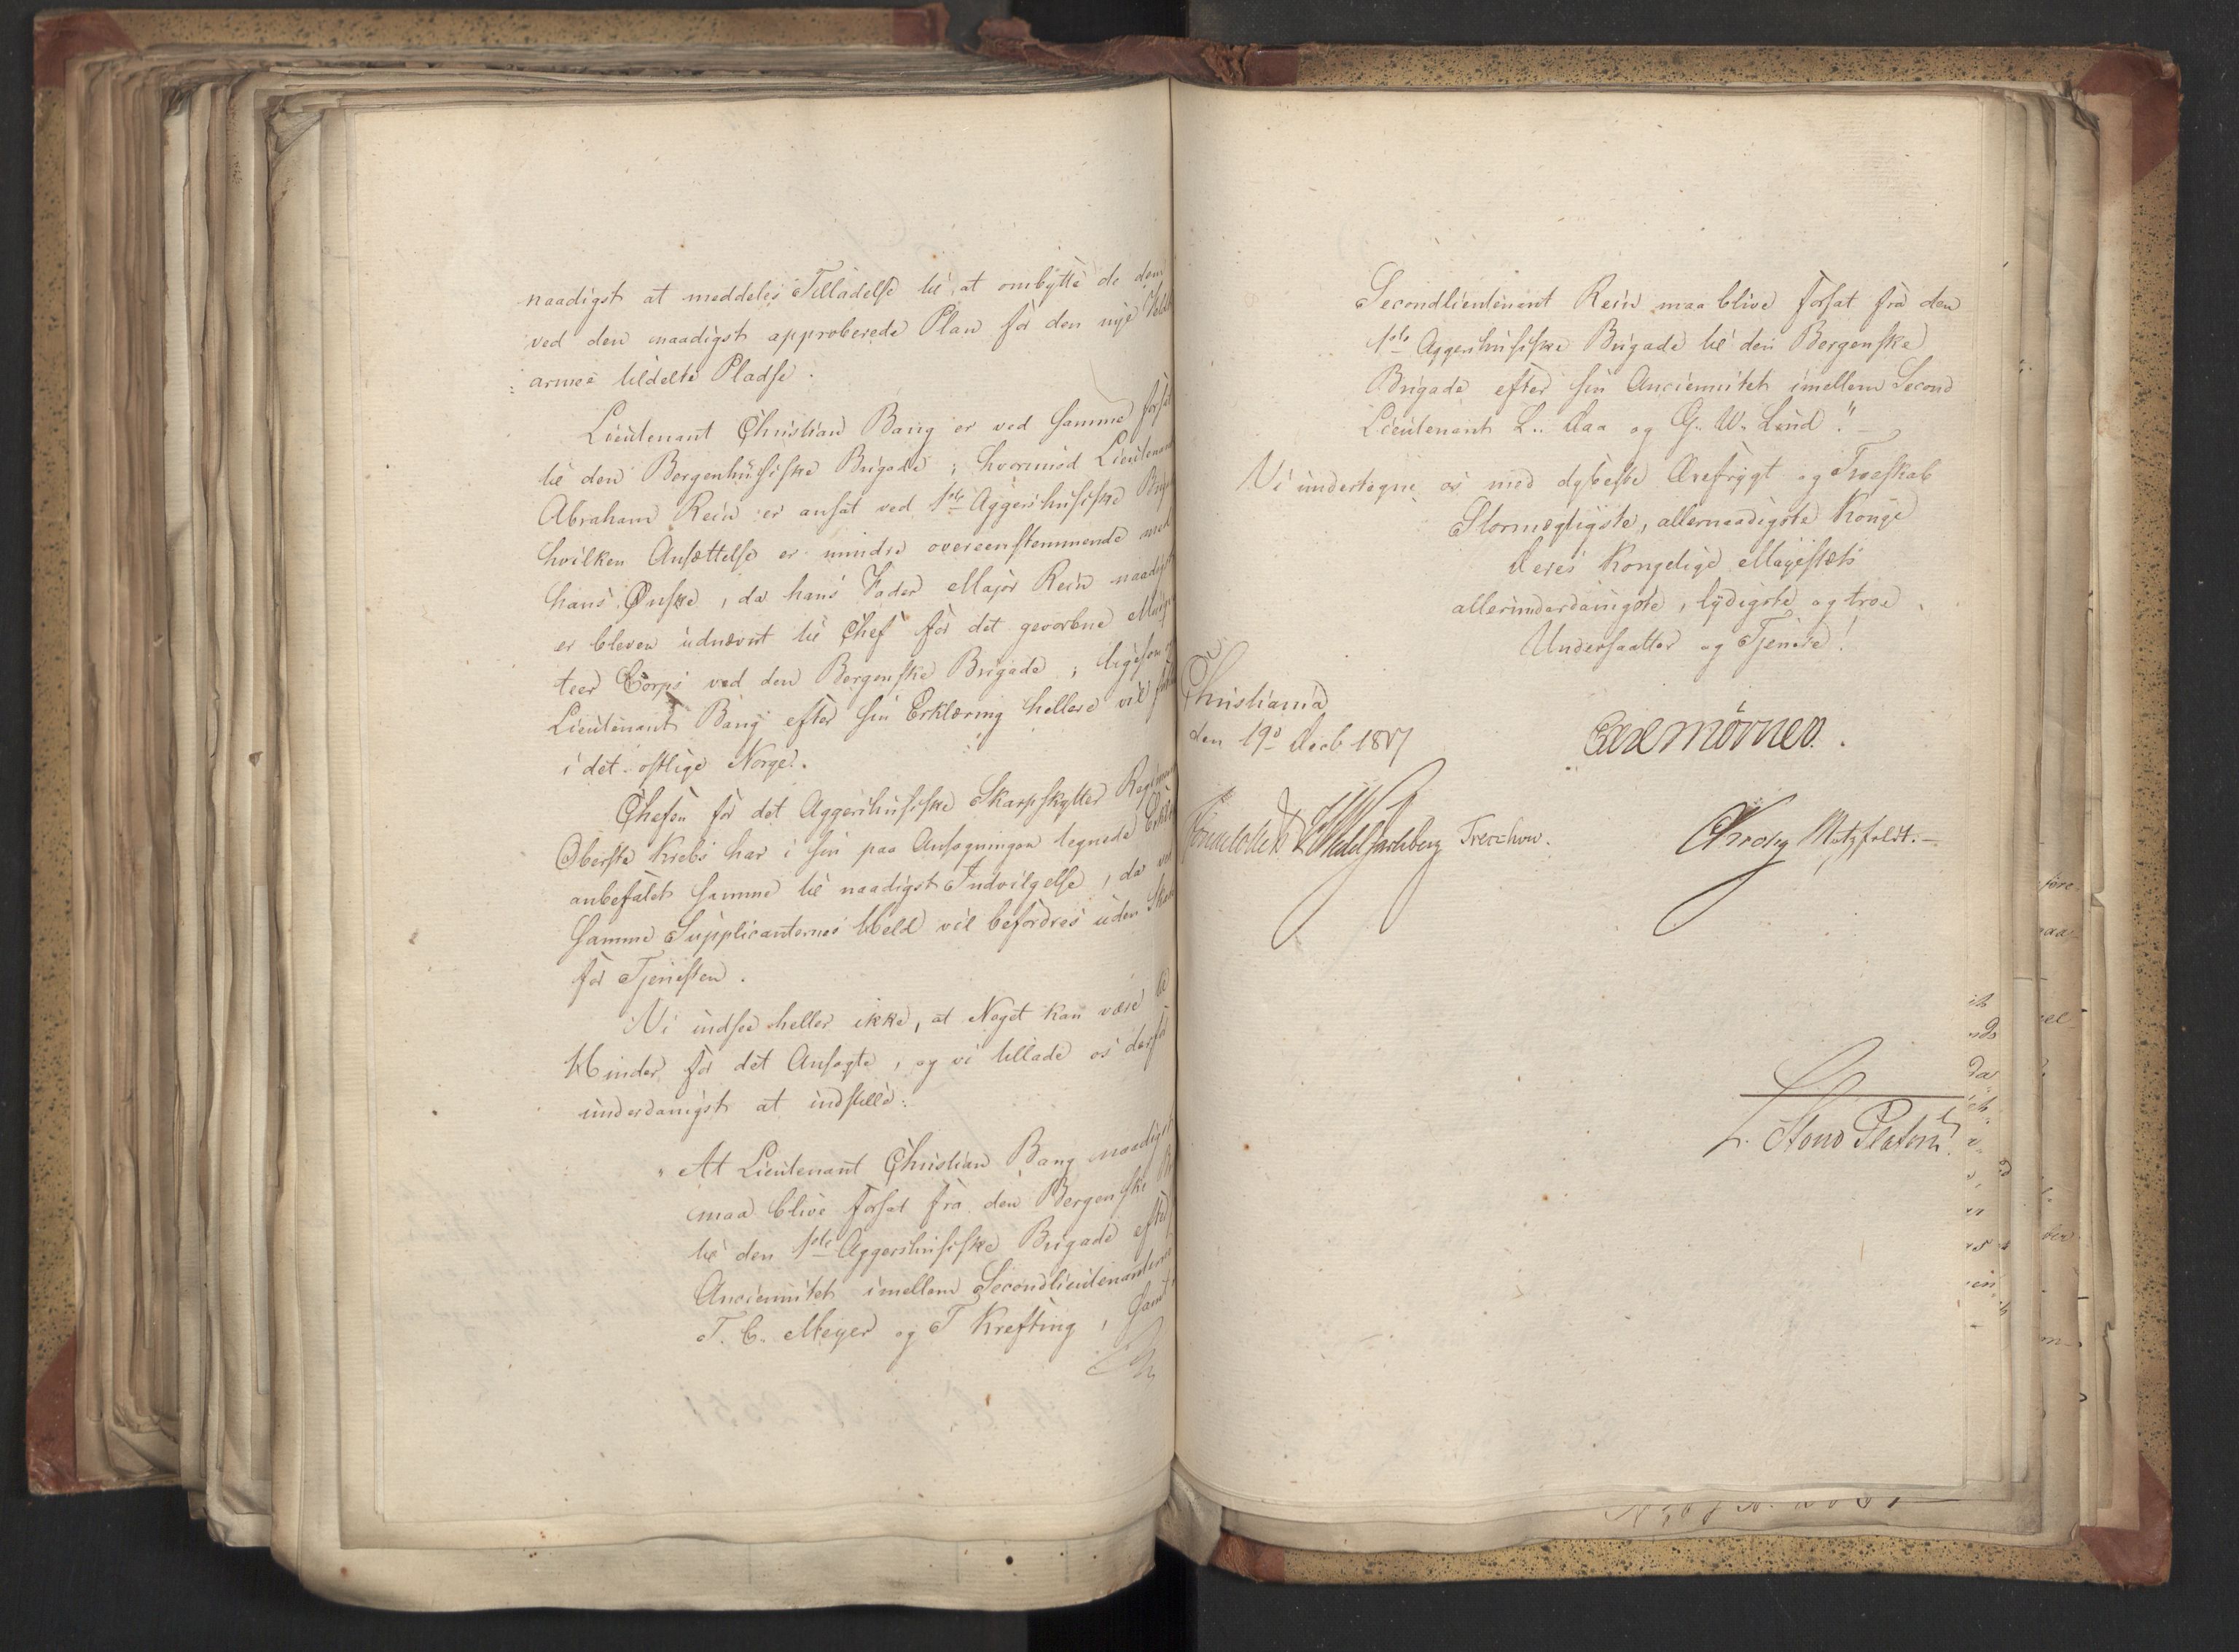 naadigst at meddeles Tilladelse til at ombytte de dem
ved den naadigst approberede Plan for den nye
armee tildelte Pladse.
Lieutenant Christian Bang er ved samme forsat
til den Bergenhusiske Brigade, hvorimod Lieutenant
Abraham Rein er ansat ved 1ste Aggershusiske
hvilken Ansættelse er mindre overeenstemmende med
hans Ønske, da hans Fader Major Rein naadigst
er bleven udnævnt til Chef for det gevorbne
teer Corps ved den Bergenske Brigade, ligesom
Lieutenant Bang efter sin Erklæring hellere vil
i det østlige Norge.
Chefen for det Aggershusiske Skarpskytter
Oberste Krebs har i sin paa Ansøgningen tegnede
anbefalet samme til naadigst Indvilgelse, da ved
samme Supplicanternes Held vil befordres uden
for Tjenesten.
Vi indsee heller ikke, at Noget kan være til
Hinder for det Ansøgte, og vi tillade os derfor
underdanigst at indstille:
"At Lieutenant Christian Bang naadigst
maa blive forsat fra den Bergenske
til den 1ste Aggershusiske Brigade efter
Anciennitet imellem Secondlieutenanterne
T. C. Meyer og T Krefting, samt
Secondlieutenant Rein maa blive forsat fra den
1ste Aggershusiske Brigade til den Bergenske
Brigade efter sin Anciennitet imellem Second
Lieutenant L. Daa og G. W. Lund."
Vi undertegne os med dybeste Ærefrygt og Troeskab
Stormægtigste, allernaadigste Konge
Deres Kongelige Majestæts
allerunderdanigste, lydigste og troe
Undersaatter og Tjenere!
Christiania
den 19de Decb 1817
Carl Mörner.
Sommerhielm Wedel Jarlsberg Treschow. Krog Motzfeldt.
L. Stoud Platou